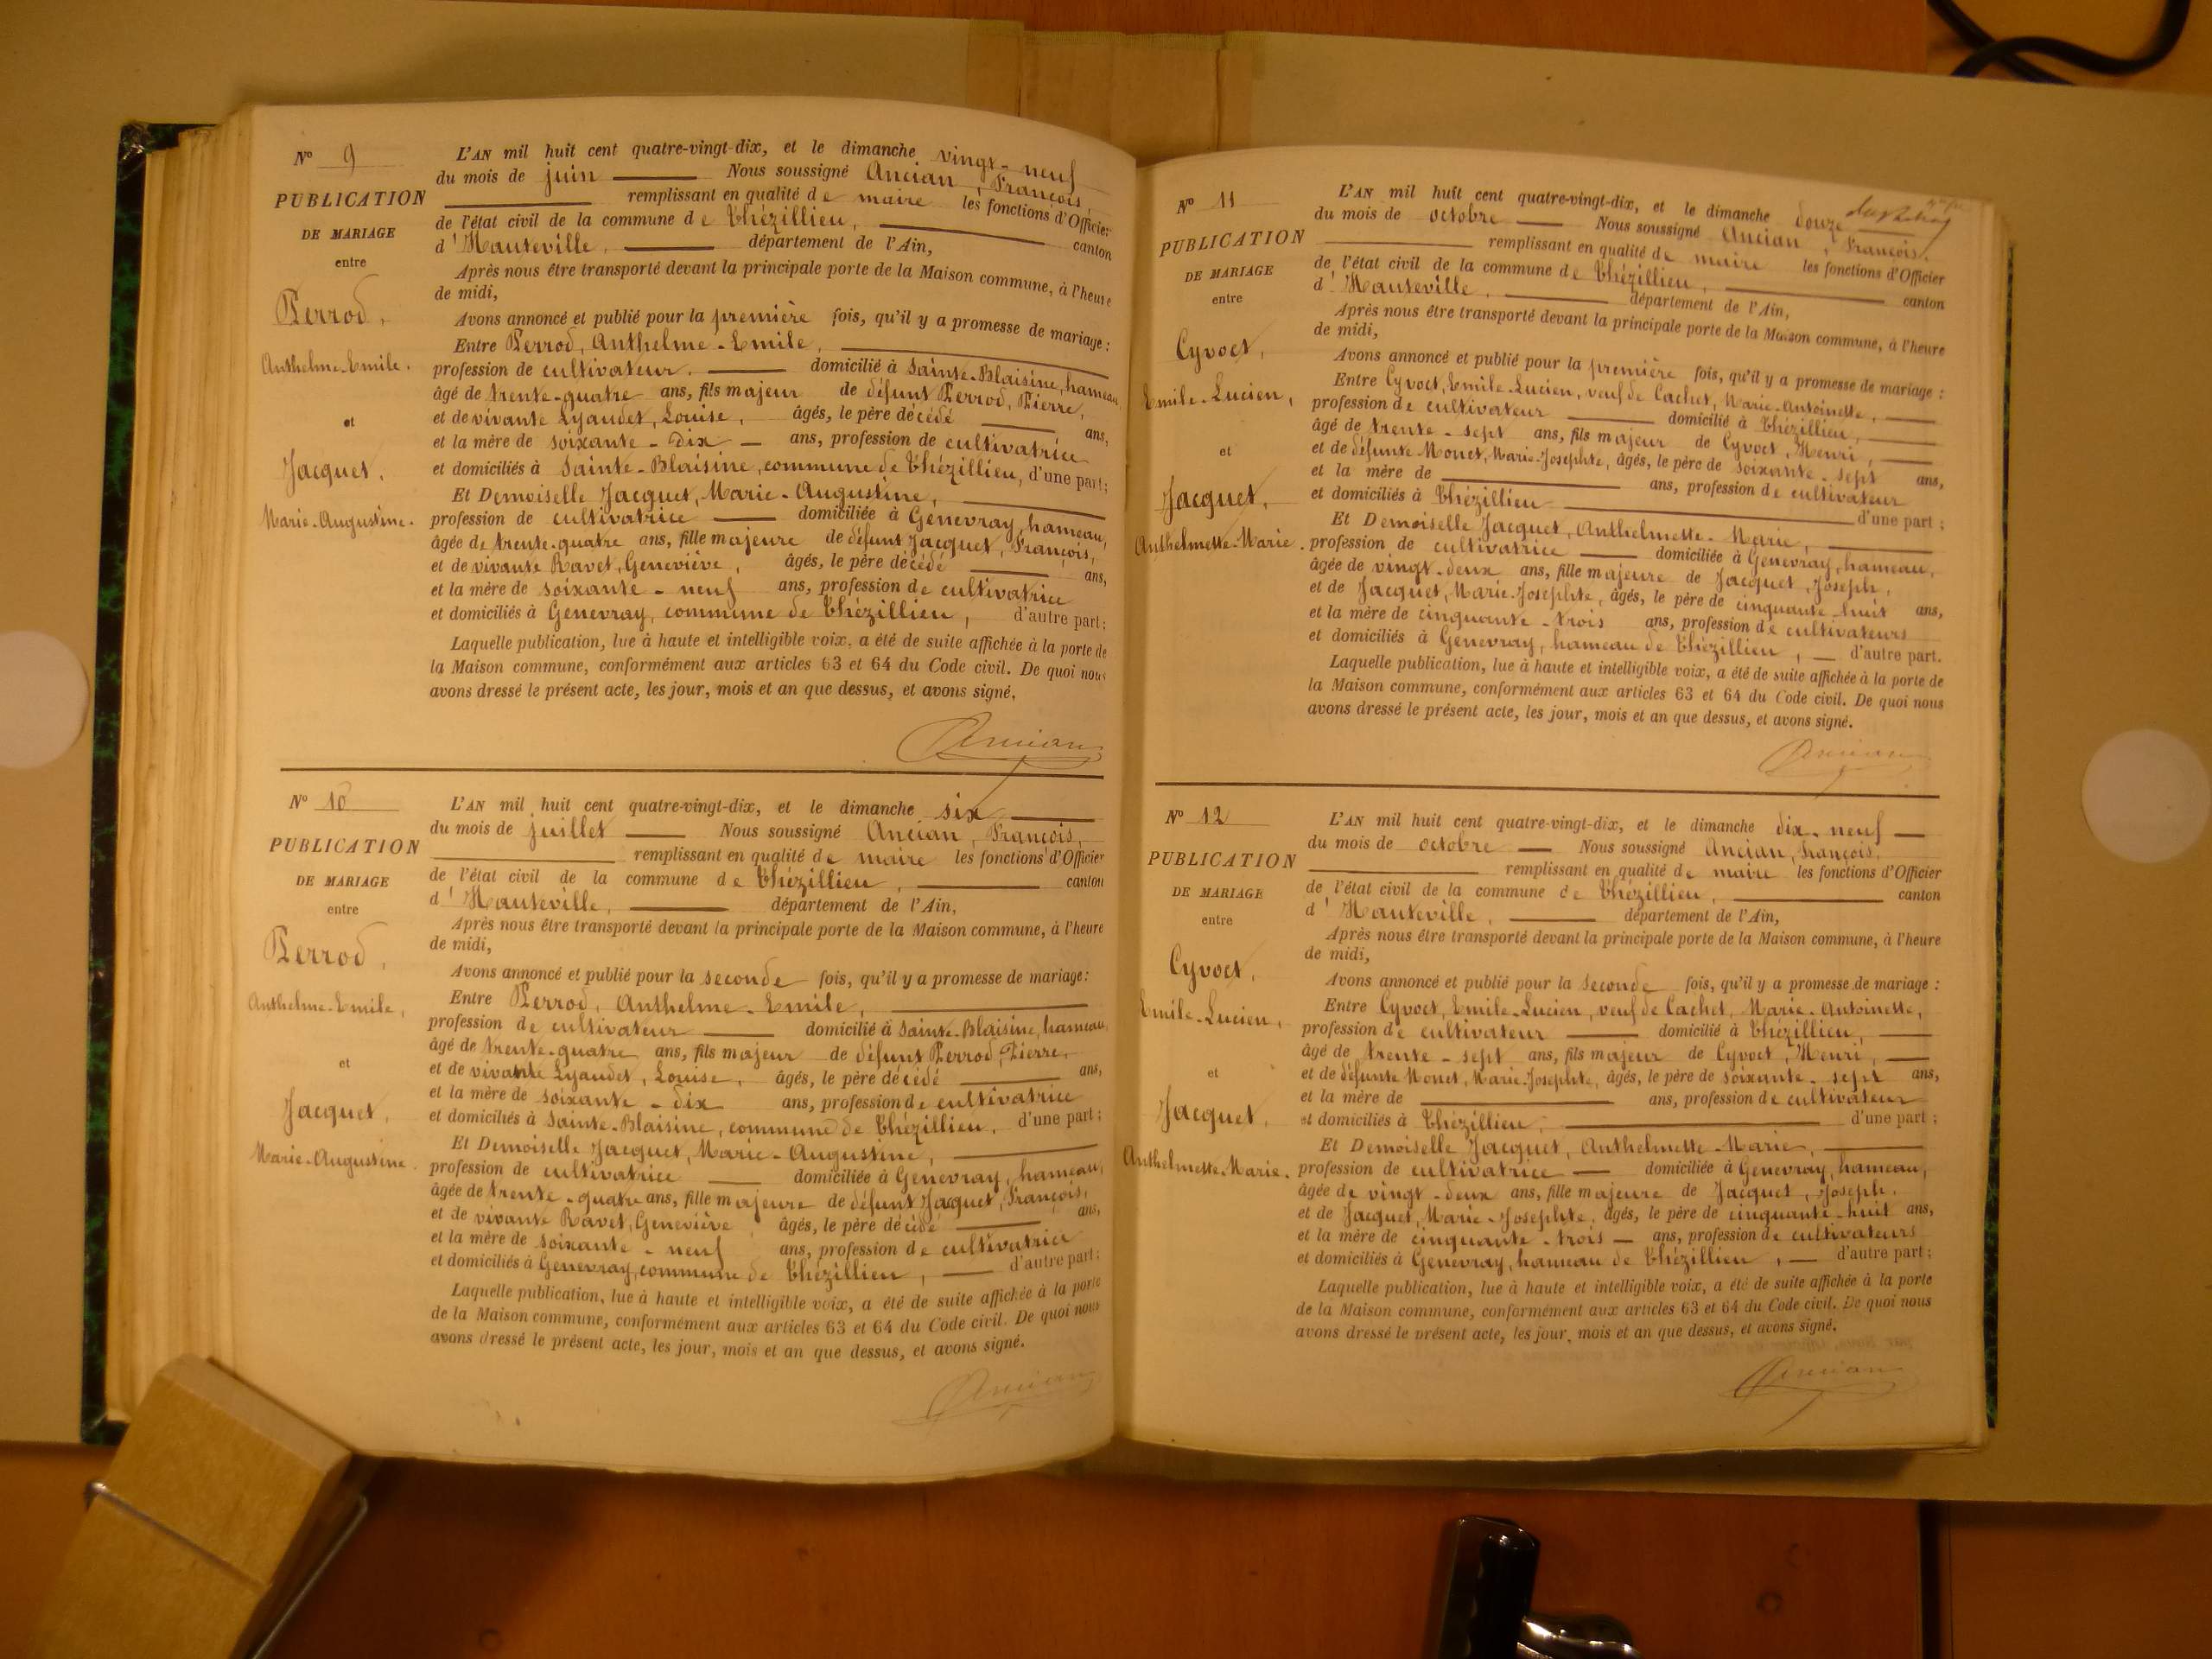 Nº 9
PUBLICATION
DE MARIAGE
entre
Perrod,
Anthelme-Emile.
et
Jacquet,
Marie-Augustine.
L'AN mil huit cent quatre-vingt-dix, et le dimanche vingt-neuf
du mois de juin Nous soussigné Ancian, François,
remplissant en qualité de maire les fonctions d'Officier
de l'état civil de la commune de Thézillieu, canton
d'Hauteville, département de l'Ain,
Après nous être transporté devant la principale porte de la Maison commune, à l'heure
de midi,
Avons annoncé et publié pour la première fois, qu'il y a promesse de mariage:
Entre Perrod, Anthelme-Emile,
profession de cultivateur. domicilié à Sainte-Blaisine, hameau
âgé de trente-quatre ans, fils majeur de défunt Perrod, Pierre,
et de vivante Lyaudet, Louise, âgés, le père décédé ans,
et la mère de soixante-dix ans, profession de cultivatrice
et domiciliés à Sainte-Blaisine, commune de Thézillieu, d'une part;
Et Demoiselle Jacquet, Marie-Augustine,
profession de cultivatrice domiciliée à Genevray, hameau,
âgée de trente-quatre ans, fille majeure de défunt Jacquet, François,
et de vivante Ravet, Geneviève, âgés, le père décédé ans,
et la mère de soixante-neuf ans, profession de cultivatrice
et domiciliés à Genevray, commune de Thézillieu, d'autre part;
Laquelle publication, lue à haute et intelligible voix, a été de suite affichée à la porte de
la Maison commune, conformément aux articles 63 et 64 du Code civil. De quoi nous
avons dressé le présent acte, les jour, mois et an que dessus, et avons signé.
Ancian
Nº 10
PUBLICATION
DE MARIAGE
entre
Perrod,
Anthelme-Emile,
et
Jacquet,
Marie-Augustine.
L'AN mil huit cent quatre-vingt-dix, et le dimanche six
du mois de juillet Nous soussigné Ancian, François,
remplissant en qualité de maire les fonctions d'Officier
de l'état civil de la commune de Thézillieu, canton
d'Hauteville, département de l'Ain,
Après nous être transporté devant la principale porte de la Maison commune, à l'heure
de midi,
Avons annoncé et publié pour la seconde fois, qu'il y a promesse de mariage:
Entre Perrod, Anthelme-Emile,
profession de cultivateur domicilié à Sainte-Blaisine, hameau,
âgé de trente-quatre ans, fils majeur de défunt Perrod, Pierre,
et de vivante Lyaudet, Louise, âgés, le père décédé ans,
et la mère de soixante-dix ans, profession de cultivatrice
et domiciliés à Sainte-Blaisine, commune de Thézillieu, d'une part;
Et Demoiselle Jacquet, Marie-Augustine,
profession de cultivatrice domiciliée à Genevray, hameau,
âgée de trente-quatre ans, fille majeure de défunt Jacquet, François,
et de vivante Ravet, Geneviève âgés, le père décédé ans,
et la mère de soixante-neuf ans, profession de cultivatrice
et domiciliés à Genevray, commune de Thézillieu, d'autre part;
Laquelle publication, lue à haute et intelligible voix, a été de suite affichée à la porte
de la Maison commune, conformément aux articles 63 et 64 du Code civil. De quoi nous
avons dressé le présent acte, les jour, mois et an que dessus, et avons signé.
Ancian
Nº 11
PUBLICATION
DE MARIAGE
entre
Cyvoct,
Emile-Lucien,
et
Jacquet,
Anthelmette-Marie.
L'AN mil huit cent quatre-vingt-dix, et le dimanche douze
du mois de octobre Nous soussigné Ancian, François.
remplissant en qualité de maire les fonctions d'Officier
de l'état civil de la commune de Thézillieu, canton
d'Hauteville, département de l'Ain,
Après nous être transporté devant la principale porte de la Maison commune, à l'heure
de midi,
Avons annoncé et publié pour la première fois, qu'il y a promesse de mariage:
Entre Cyvoct, Emile-Lucien, veuf de Cachet, Marie-Antoinette,
profession de cultivateur domicilié à Thézillieu,
âgé de trente-sept ans, fils majeur de Cyvoct, Henri,
et de défunte Monet, Marie-Josephte, âgés, le père de soixante-sept ans,
et la mère de ans, profession de cultivateur
et domiciliés à Thézillieu d'une part;
Et Demoiselle Jacquet, Anthelmette-Marie,
profession de cultivatrice domiciliée à Genevray, hameau,
âgée de vingt-deux ans, fille majeure de Jacquet, Joseph,
et de Jacquet, Marie-Josephte, âgés, le père de cinquante-huit ans,
et la mère de cinquante-trois ans, profession de cultivateurs
et domiciliés à Genevray, hameau de Thézillieu, d'autre part.
Laquelle publication, lue à haute et intelligible voix, a été de suite affichée à la porte de
la Maison commune, conformément aux articles 63 et 64 du Code civil. De quoi nous
avons dressé le présent acte, les jour, mois et an que dessus, et avons signé.
Ancian
Nº 12
PUBLICATION
DE MARIAGE
entre
Cyvoct,
Emile-Lucien,
et
Jacquet,
Anthelmette-Marie.
L'AN mil huit cent quatre-vingt-dix, et le dimanche dix-neuf
du mois de octobre Nous soussigné Ancian, François,
remplissant en qualité de maire les fonctions d'Officier
de l'état civil de la commune de Thézillieu, canton
d'Hauteville, département de l'Ain,
Après nous être transporté devant la principale porte de la Maison commune, à l'heure
de midi,
Avons annoncé et publié pour la seconde fois, qu'il y a promesse de mariage:
Entre Cyvoct, Emile-Lucien, veuf de Cachet, Marie-Antoinette,
profession de cultivateur domicilié à Thézillieu,
âgé de trente-sept ans, fils majeur de Cyvoct, Henri,
et de défunte Monet, Marie-Josephte, âgés, le père de soixante-sept ans,
et la mère de ans, profession de cultivateur
et domiciliés à Thézillieu, d'une part;
Et Demoiselle Jacquet, Anthelmette-Marie,
profession de cultivatrice domiciliée à Genevray, hameau,
âgée de vingt-deux ans, fille majeure de Jacquet, Joseph,
et de Jacquet, Marie-Josephte, âgés, le père de cinquante-huit ans,
et la mère de cinquante-trois ans, profession de cultivateurs
et domiciliés à Genevray, hameau de Thézillieu, d'autre part;
Laquelle publication, lue à haute et intelligible voix, a été de suite affichée à la porte
de la Maison commune, conformément aux articles 63 et 64 du Code civil. De quoi nous
avons dressé le présent acte, les jour, mois et an que dessus, et avons signé.
Ancian